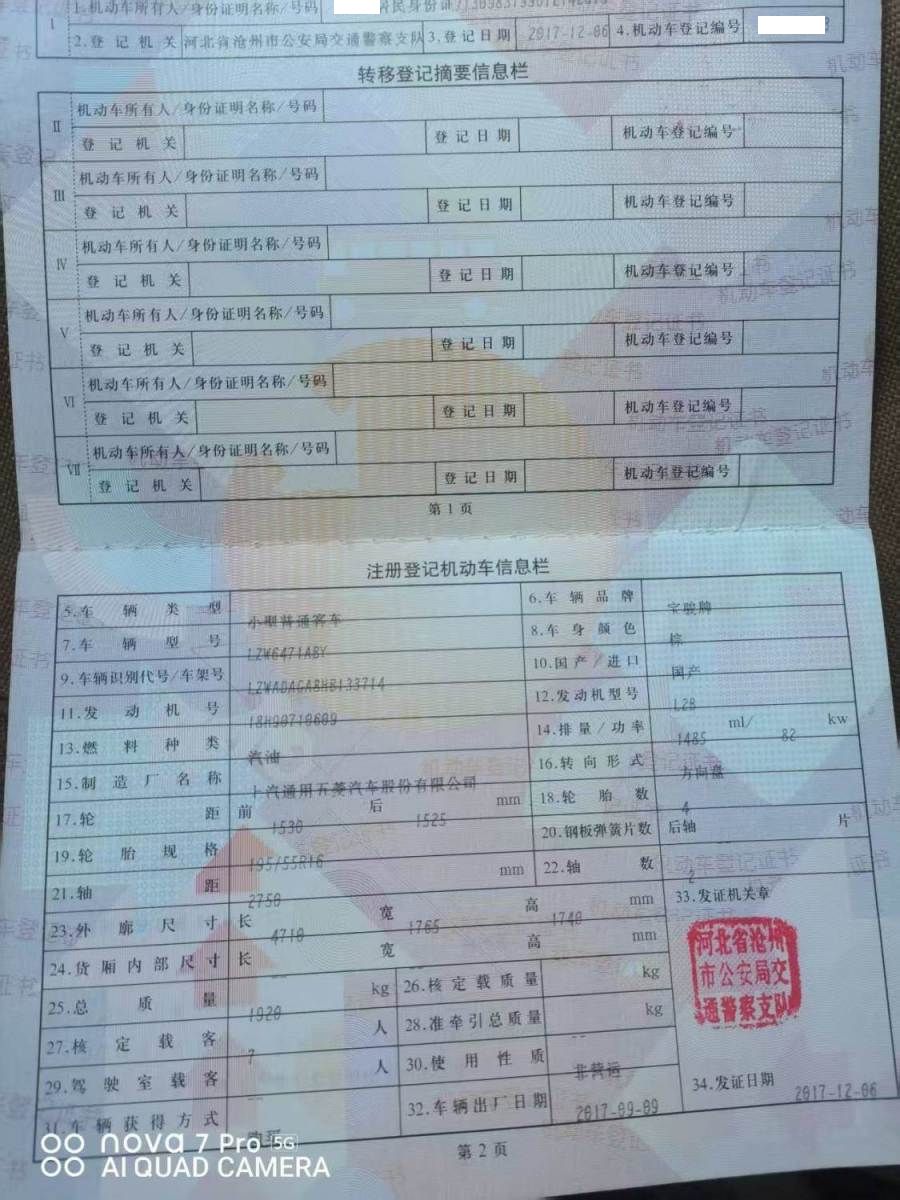 1.机动车所有人/身份证明名称/号码 居民身份证/
I
2.登记机关 河北省沧州市公安局交通警察支队 3.登记日期 2017-12-06 4.机动车登记编号
转移登记摘要信息栏
II 机动车所有人/身份证明名称/号码
登记机关 登记日期 机动车登记编号
III 机动车所有人/身份证明名称/号码
登记机关 登记日期 机动车登记编号
IV 机动车所有人/身份证明名称/号码
登记机关 登记日期 机动车登记编号
V 机动车所有人/身份证明名称/号码
登记机关 登记日期 机动车登记编号
VI 机动车所有人/身份证明名称/号码
登记机关 登记日期 机动车登记编号
VII 机动车所有人/身份证明名称/号码
登记机关 登记日期 机动车登记编号
第1页
注册登记机动车信息栏
5.车辆类型 小型普通客车 6.车辆品牌 宝骏牌
7.车辆型号 LZW6471ABY 8.车身颜色 棕
9.车辆识别代号/车架号 LZWADAGA8HB133714 10.国产/进口 国产
11.发动机号 18H90710609 12.发动机型号 L2B
13.燃料种类 汽油 14.排量/功率 1485 ml/ 82 kw
15.制造厂名称 上汽通用五菱汽车股份有限公司 16.转向形式 方向盘
17.轮距 前 1530 后 1525 mm 18.轮胎数 4
19.轮胎规格 195/55R16 20.钢板弹簧片数 后轴 -- 片
21.轴距 2750 mm 22.轴数 2
23.外廓尺寸 长 4710 宽 1765 高 1740 mm 33.发证机关章
24.货厢内部尺寸 长 宽 高 mm
河北省沧州
市公安局交
通警察支队
25.总质量 1920 kg 26.核定载质量 kg
27.核定载客 7 人 28.准牵引总质量 -- kg
29.驾驶室载客 人 30.使用性质 非营运
34.发证日期 2017-12-06
31.车辆获得方式 购买 32.车辆出厂日期 2017-09-09
第2页
nova 7 Pro 5G
AI QUAD CAMERA